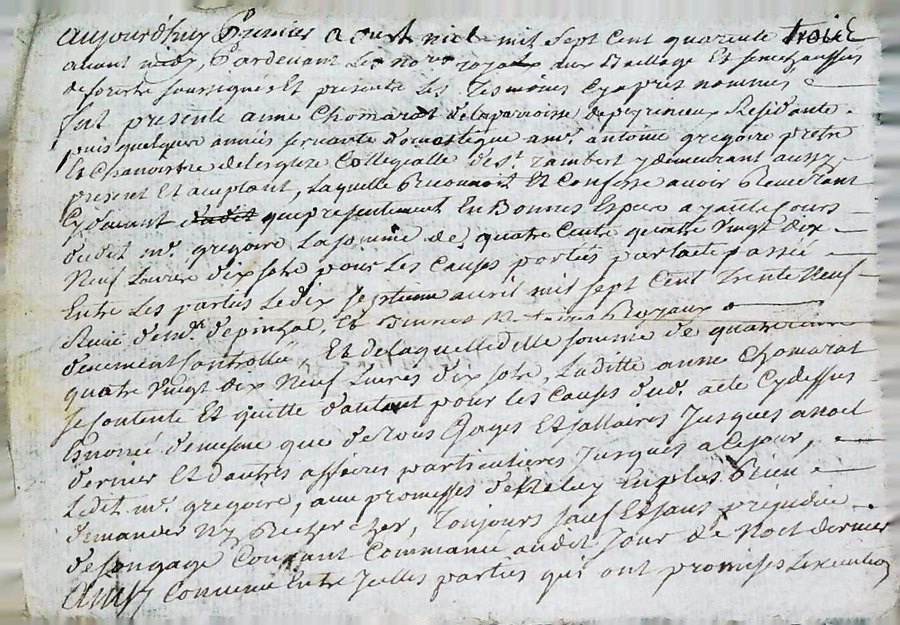 aujourd'huy Premier aoust mil mil sept Cent quarente trois
avant midy, Pardevant les nores royaux aux Bailliage Et senechaussée
de forestz soussignés Et presents Les Tesmoins Cyaprès nommés
fut presente anne Chomarat de la parroisse de peyreneux Residante
puis quelques années servante domestique a mr. antoine gregoire pretre
Et Chanoine de lesglize Collegialle de st. rambert y demeurant aussy
present Et aceptant, Laquelle Reconnoit Et Confesse avoir Reçu
Cy devant que presentement En Bonnes Espece ayant Cours
dudit mr. gregoire La somme de quatre Cents quatre vingt dix
Neuf Livres dix sols pour les Causes portées par l'acte passé
Entre les parties Le dix septieme avril mil sept Cent Trente Neuf
Reçu Notaires Royaux
duement Controllé, Et de laquelle ditte somme de quatre Cent
quatre vingt dix Neuf Livres dix sols, Laditte anne Chomarat
se Contente Et quitte d'autant pour les Causes dud. acte Cy dessus
Enoncé de mesme que de tous Gages Et sallaires Jusques a noel
dernier Et d'autres affaires particulieres Jusques a Ce jour,
Ledit mr. gregoire, avec promesses de ne luy En plus Rien
demander Ny Rechercher, Toujours sauf Et sans prejudice
de son gage Courant Commancé audit Jour de Noel dernier
ainsy Convenu Entre Icelles parties qui ont promises L'execution